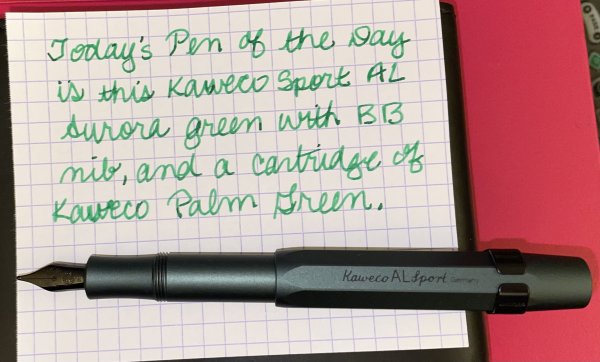 Today's Pen of the Day
is this Kaweco Sport AL
Aurora green with BB
nib, and a cartridge of
Kaweco Palm Green.
Kaweco AL Sport Germany